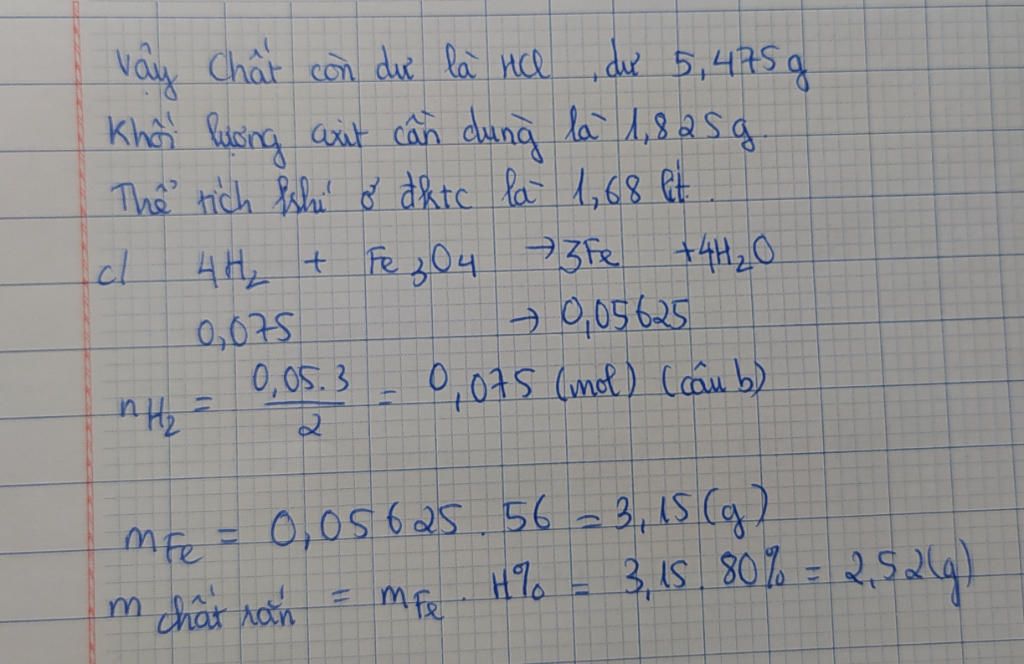 Vậy Chất còn dư là HCl, dư 5,475g
Khối lượng axit cần dùng là 1,825g.
Thể tích khí ở đktc là 1,68 lít.
c/ 4H₂ + Fe₃O₄ → 3Fe + 4H₂O
0,075 → 0,05625
n_H₂ = 0,05.3/2 = 0,075 (mol) (câu b)
m_Fe = 0,05625.56 = 3,15(g)
m chất rắn = m_Fe . H% = 3,15.80% = 2,52(g)